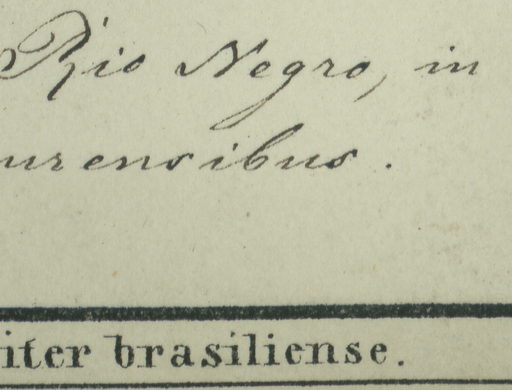 Rio Negro, in
urensibus.
iter brasiliense.